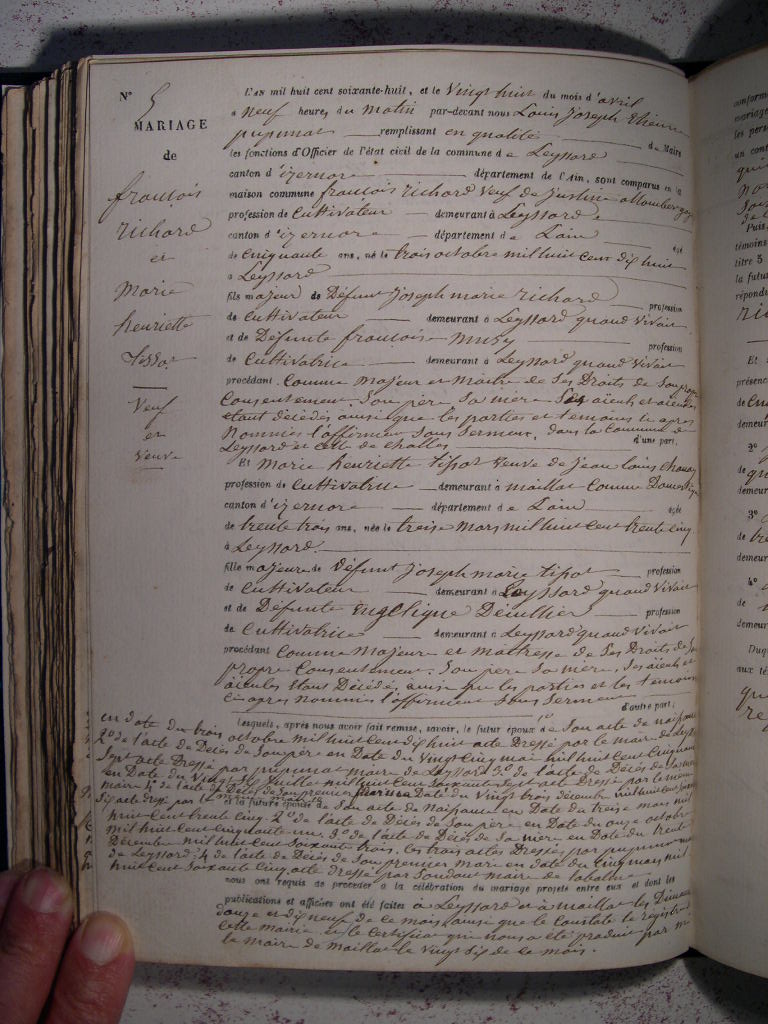 N° 5
MARIAGE
de
françois
richard
et
Marie
henriette
tissot
Veuf
et
Veuve
L'AN mil huit cent soixante-huit, et le Vingt huit du mois d'avril
à Neuf heures du Matin par-devant nous Louis Joseph Etienne
pupunat remplissant en qualité de Maire
les fonctions d'Officier de l'état civil de la commune de Leyssard
canton d'izernore département de l'Ain, sont comparus en la
maison commune françois richard Veuf de Justine
profession de Cultivateur demeurant à Leyssard
canton d'izernore département de L'ain âgé
de Cinquante ans, né le trois octobre mil huit cent dix huit
à Leyssard
fils majeur de Défunt Joseph marie richard profession
de Cultivateur demeurant à Leyssard quand Vivait
et de Défunte françoise profession
de Cultivatrice demeurant à Leyssard quand Vivait
procédant Comme Majeur et Maitre de Ses Droits de Son propre
Consentement. Son père Sa mère Ses aïeuls et aïeules
étant décédés ainsi que les parties et temoins ci après
Nommés l'affirment Sous Serment, dans la Commune de
Leyssard et celle de challes d'une part.
Et Marie henriette tissot Veuve de Jean louis
profession de Cultivatrice demeurant à maillat Comme Domestique
canton d'izernore département de L'ain âgée
de trente trois ans, née le treize Mars mil huit Cent trente Cinq
à Leyssard.
fille majeure de Défunt Joseph marie tissot profession
de Cultivateur demeurant à Leyssard quand Vivait
et de Défunte Angelique profession
de Cultivatrice demeurant à Leyssard quand Vivait
procédant Comme Majeure et maitresse de Ses Droits de Son
propre Consentement. Son père Sa mère, Ses aïeuls et
aïeules étant Décédés, ainsi que les parties et les temoins
ci après nommés l'affirment Sous Serment d'autre part;
Lesquels, après nous avoir fait remise, savoir, le futur époux 1° de Son acte de naissance
en date du trois octobre mil huit Cent dix huit acte Dressé par le maire de Leyssard
2° de l'acte de Décès de Son père en Date du Vingt Cinq mai mil huit Cent Cinquante
Sept acte Dressé par pupunat maire de Leyssard 3° de l'acte de Décès de Sa mère
en Date du Vingt Six Juillet mil huit Cent Soixante Sept acte Dressé par le même
maire 4° de l'acte de Décès de Son première femme en Date du Vingt trois décembre mil huit Cent Soixante
Six acte Dressé par le même maire
et la future épouse de Son acte de Naissance en Date du treize mars mil
huit Cent trente Cinq. 2° de l'acte de Décès de Son père en Date du onze octobre
mil huit Cent Cinquante un. 3° de l'acte de Décès de Sa mère en Date du trente
Décembre mil huit Cent Soixante trois. les trois actes Dressés par pupunat maire
de Leyssard 4° de l'acte de Décès de Son premier mari en date du Cinq mars mil
huit Cent Soixante Cinq, acte Dressé par maire de
nous ont requis de procéder à la célébration du mariage projeté entre eux et dont les
publications et affiches ont été faites à Leyssard et à maillat les Dimanches
douze et dix neuf de ce mois ainsi que le Constate le registre de
Cette mairie et le Certificat qui nous a été produit par M.
le maire de Maillat le Vingt Six de ce mois.